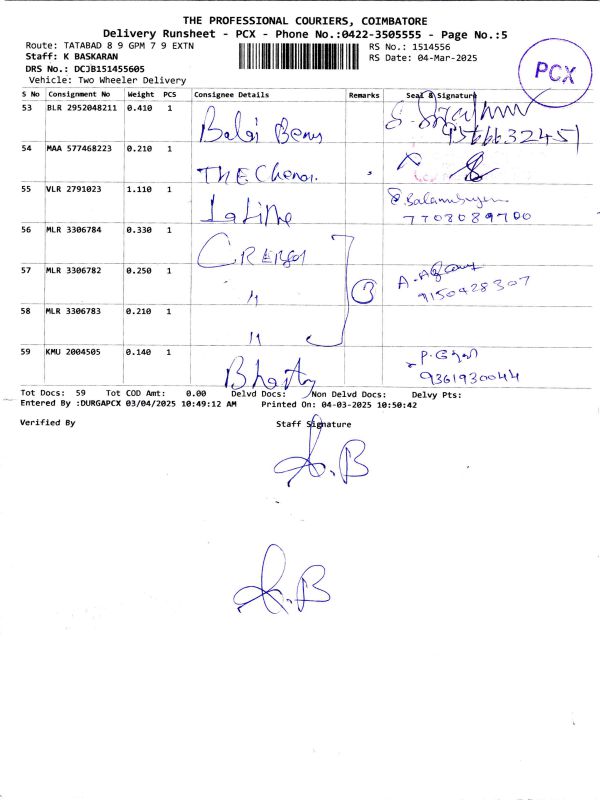 THE PROFESSIONAL COURIERS, COIMBATORE
Delivery Runsheet - PCX - Phone No.:0422-3505555 - Page No.:5
Route: TATABAD 8 9 GPM 7 9 EXTN
RS No.: 1514556
Staff: K BASKARAN
RS Date: 04-Mar-2025
DRS No.: DCJB151455605
Vehicle: Two Wheeler Delivery
PCX
S No Consignment No Weight PCS Consignee Details Remarks Seal & Signature
53 BLR 2952048211 0.410 1
54 MAA 577468223 0.210 1
THE Chenai.
55 VLR 2791023 1.110 1
7703089700
56 MLR 3306784 0.330 1
57 MLR 3306782 0.250 1
〃 3
9150928307
58 MLR 3306783 0.210 1
〃
59 KMU 2004505 0.140 1
9361930044
Tot Docs: 59 Tot COD Amt: 0.00 Delvd Docs: Non Delvd Docs: Delvy Pts:
Entered By :DURGAPCX 03/04/2025 10:49:12 AM Printed On: 04-03-2025 10:50:42
Verified By Staff Signature